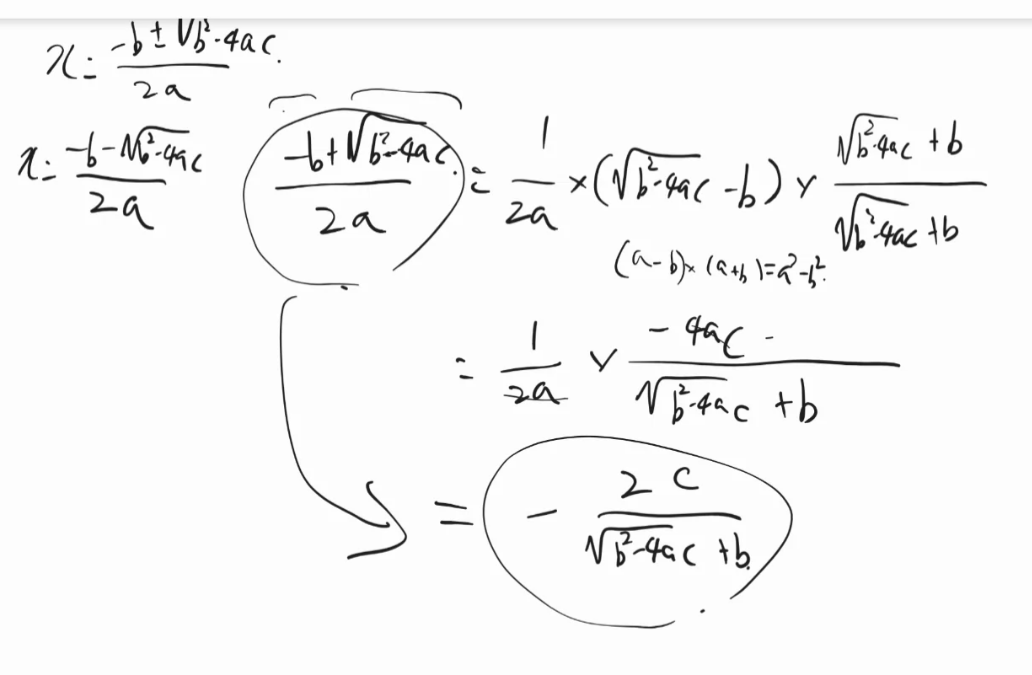 x = (-b ± √(b²-4ac)) / 2a
x = (-b - √(b²-4ac)) / 2a
(-b + √(b²-4ac)) / 2a = 1/2a × (√(b²-4ac) - b) × (√(b²-4ac) + b) / (√(b²-4ac) + b)
(a-b)×(a+b)=a²-b².
= 1/2a × -4ac / (√(b²-4ac) + b)
= - 2c / (√(b²-4ac) + b)